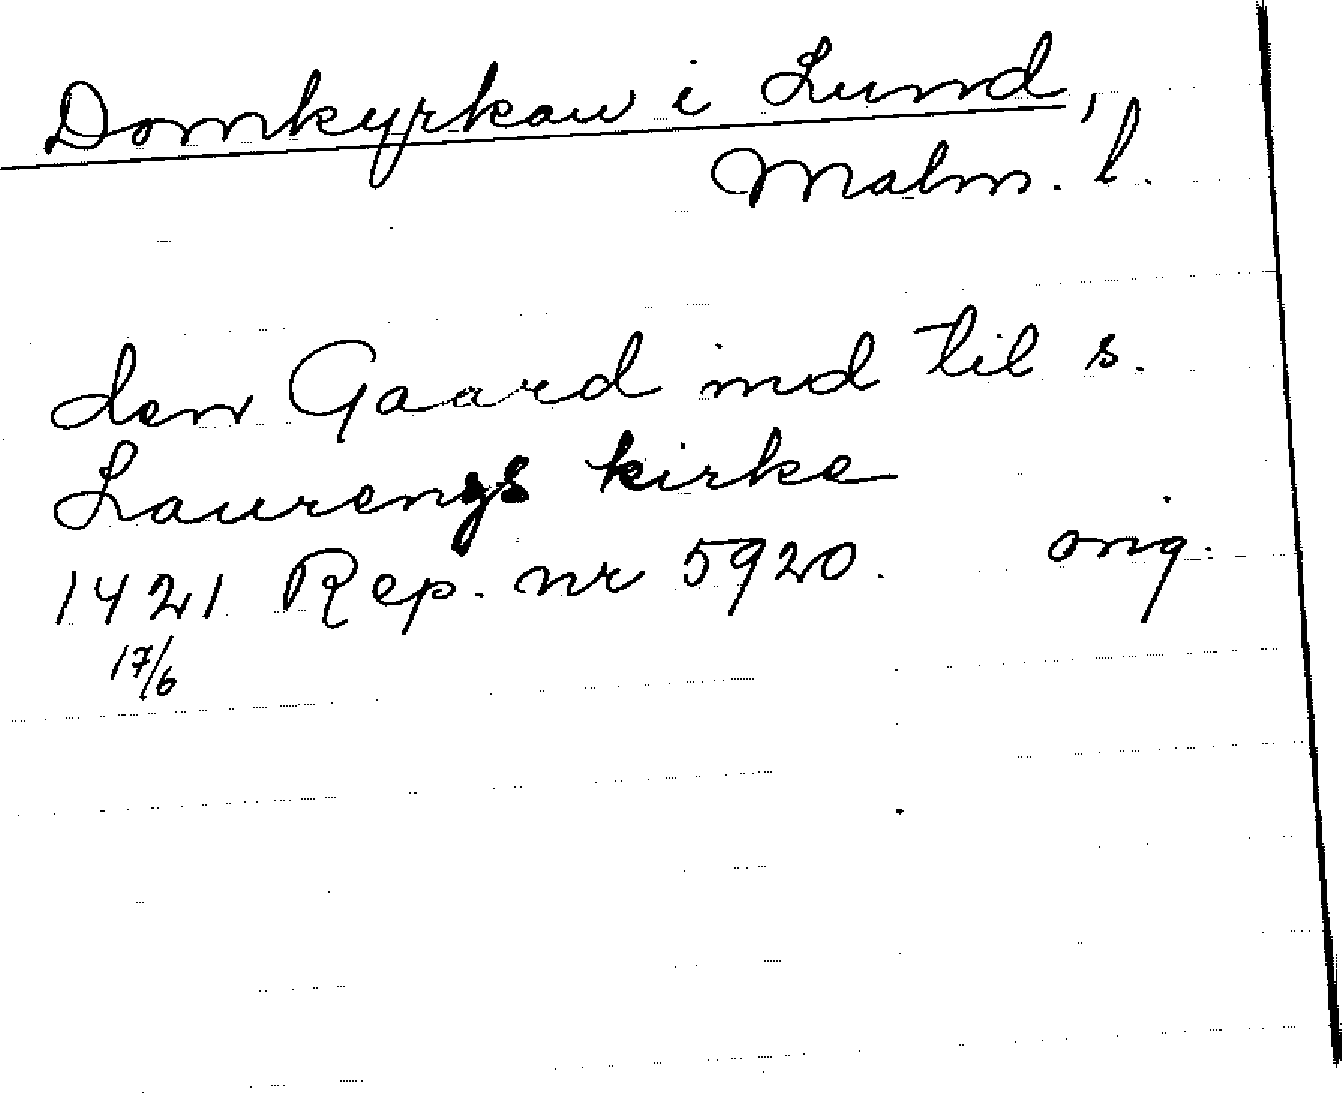 Domkyrkan i Lund,
Malm. l.
den Gaard ind til s.
Laurengs kirke
1421 Rep. nr 5920. orig.
17/6